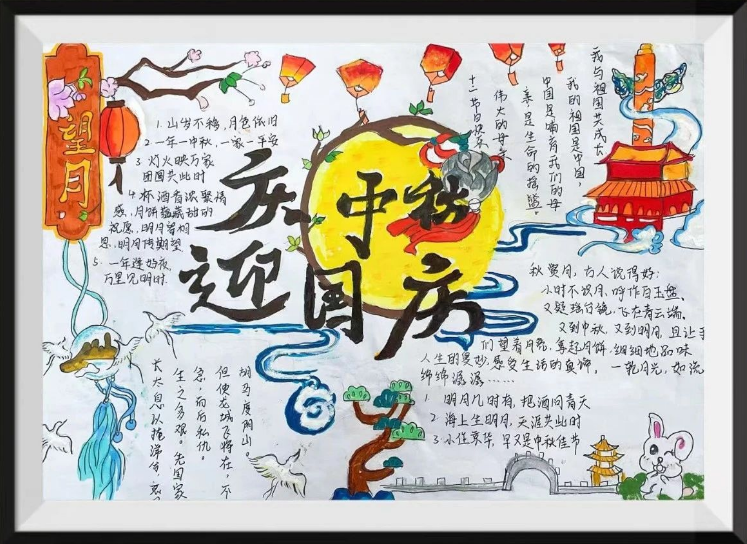 望月
1. 山岁不移，月色依旧
2. 一年一中秋，一家一平安
3. 灯火映万家
团圆共此时
4. 杯酒香浓聚情
感，月饼蕴藏甜的
祝愿，明月寄相
思，明月
5. 一年逢好夜，
万里见明时.
庆中秋
迎国庆
我与祖国共成长
我的祖国是中国，
中国是哺育我们的母
亲是生命的摇篮。
伟大的母亲
十一节日快乐
秋赏月，古人说得好:
小时不识月，呼作白玉盘。
又疑瑶台镜，飞在青云端。
又到中秋，又到明月，且让
们望着月亮，拿起月饼，细细地品味
人生的美妙，感受生活的
绵绵潺潺……
一轮月光，如
1. 明月几时有，把酒问青天
2. 海上生明月，天涯共此时
3. 小住京华，早又是中秋佳节
胡马度阴山。
但使龙城飞将在，不
急，而后私仇。
生之多艰。先国家
长太息以掩涕兮，哀